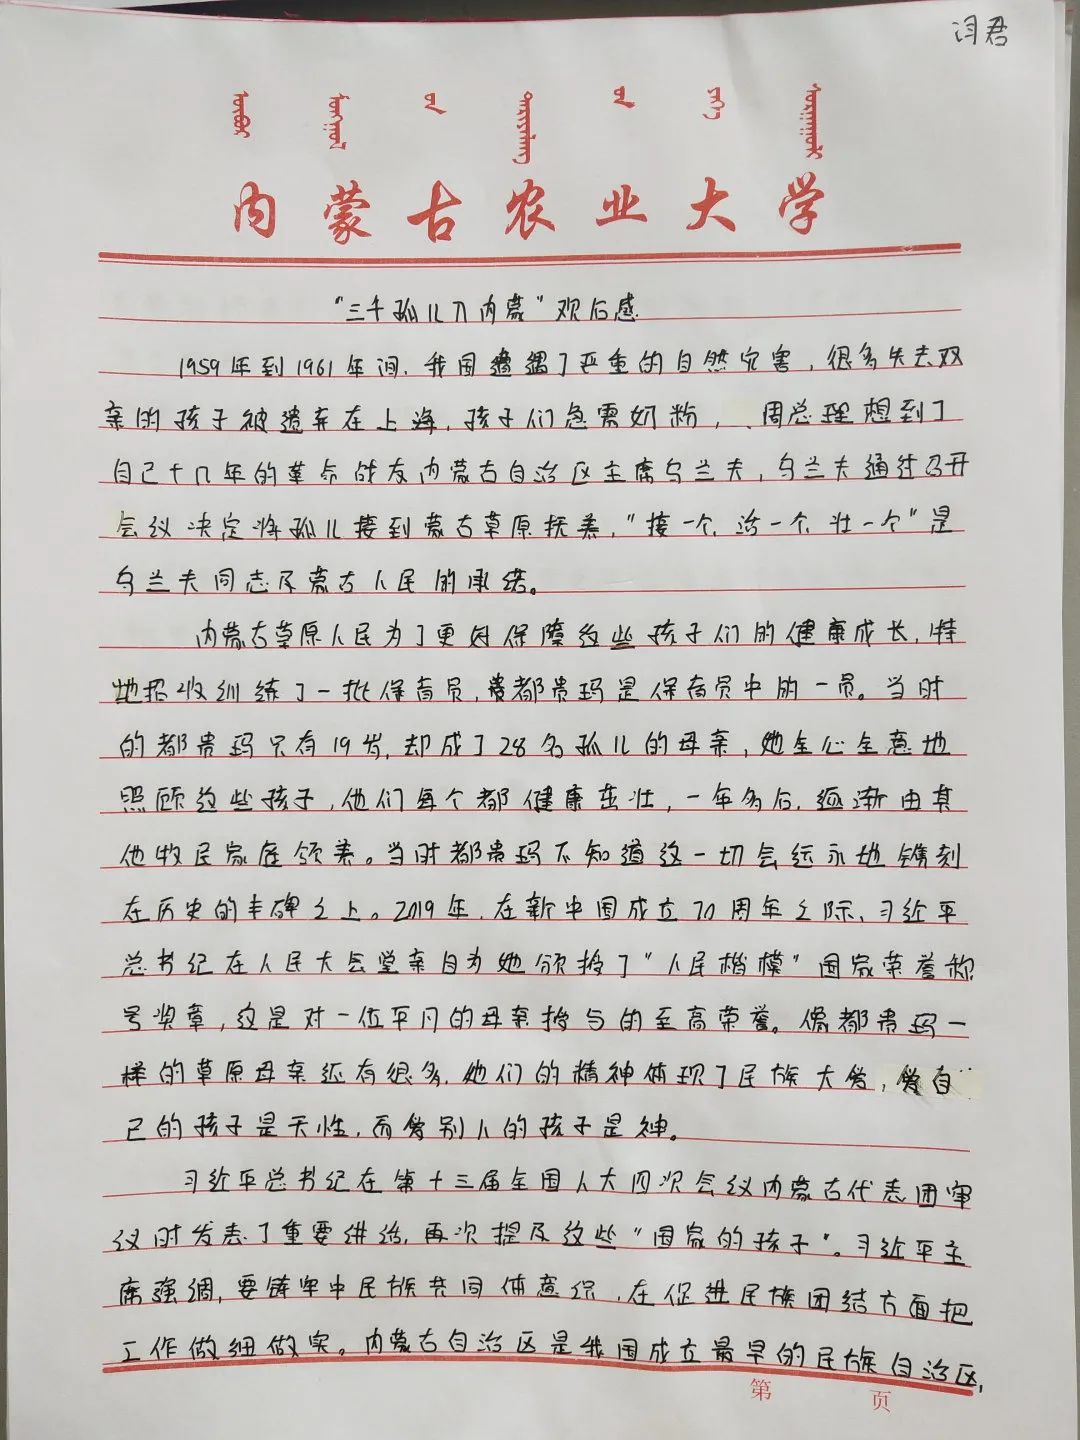 闫君
内蒙古农业大学
“三千孤儿入内蒙”观后感
1959年到1961年间,我国遭遇了严重的自然灾害,很多失去双
亲的孩子被遗弃在上海,孩子们急需奶粉,周总理想到了
自己十几年的革命战友内蒙古自治区主席乌兰夫,乌兰夫通过召开
会议决定将孤儿接到蒙古草原抚养,“接一个、活一个、壮一个”是
乌兰夫同志及蒙古人民的承诺。
内蒙古草原人民为了更好保障这些孩子们的健康成长,特
地招收训练了一批保育员,都贵玛是保育员中的一员。当时
的都贵玛只有19岁,却成了28名孤儿的母亲,她全心全意地
照顾这些孩子,他们每个都健康茁壮,一年多后,逐渐由其
他牧民家庭领养。当时都贵玛不知道这一切会远永地镌刻
在历史的丰碑之上。2019年,在新中国成立70周年之际,习近平
总书记在人民大会堂亲自为她颁授了“人民楷模”国家荣誉称
号奖章,这是对一位平凡的母亲授与的至高荣誉。像都贵玛一
样的草原母亲还有很多,她们的精神体现了民族大爱,爱自
己的孩子是天性,而爱别人的孩子是神。
习近平总书记在第十三届全国人大四次会议内蒙古代表团审
议时发表了重要讲话,再次提及这些“国家的孩子”。习近平主
席强调,要铸牢中民族共同体意识,在促进民族团结方面把
工作做细做实。内蒙古自治区是我国成立最早的民族自治区,
第 页